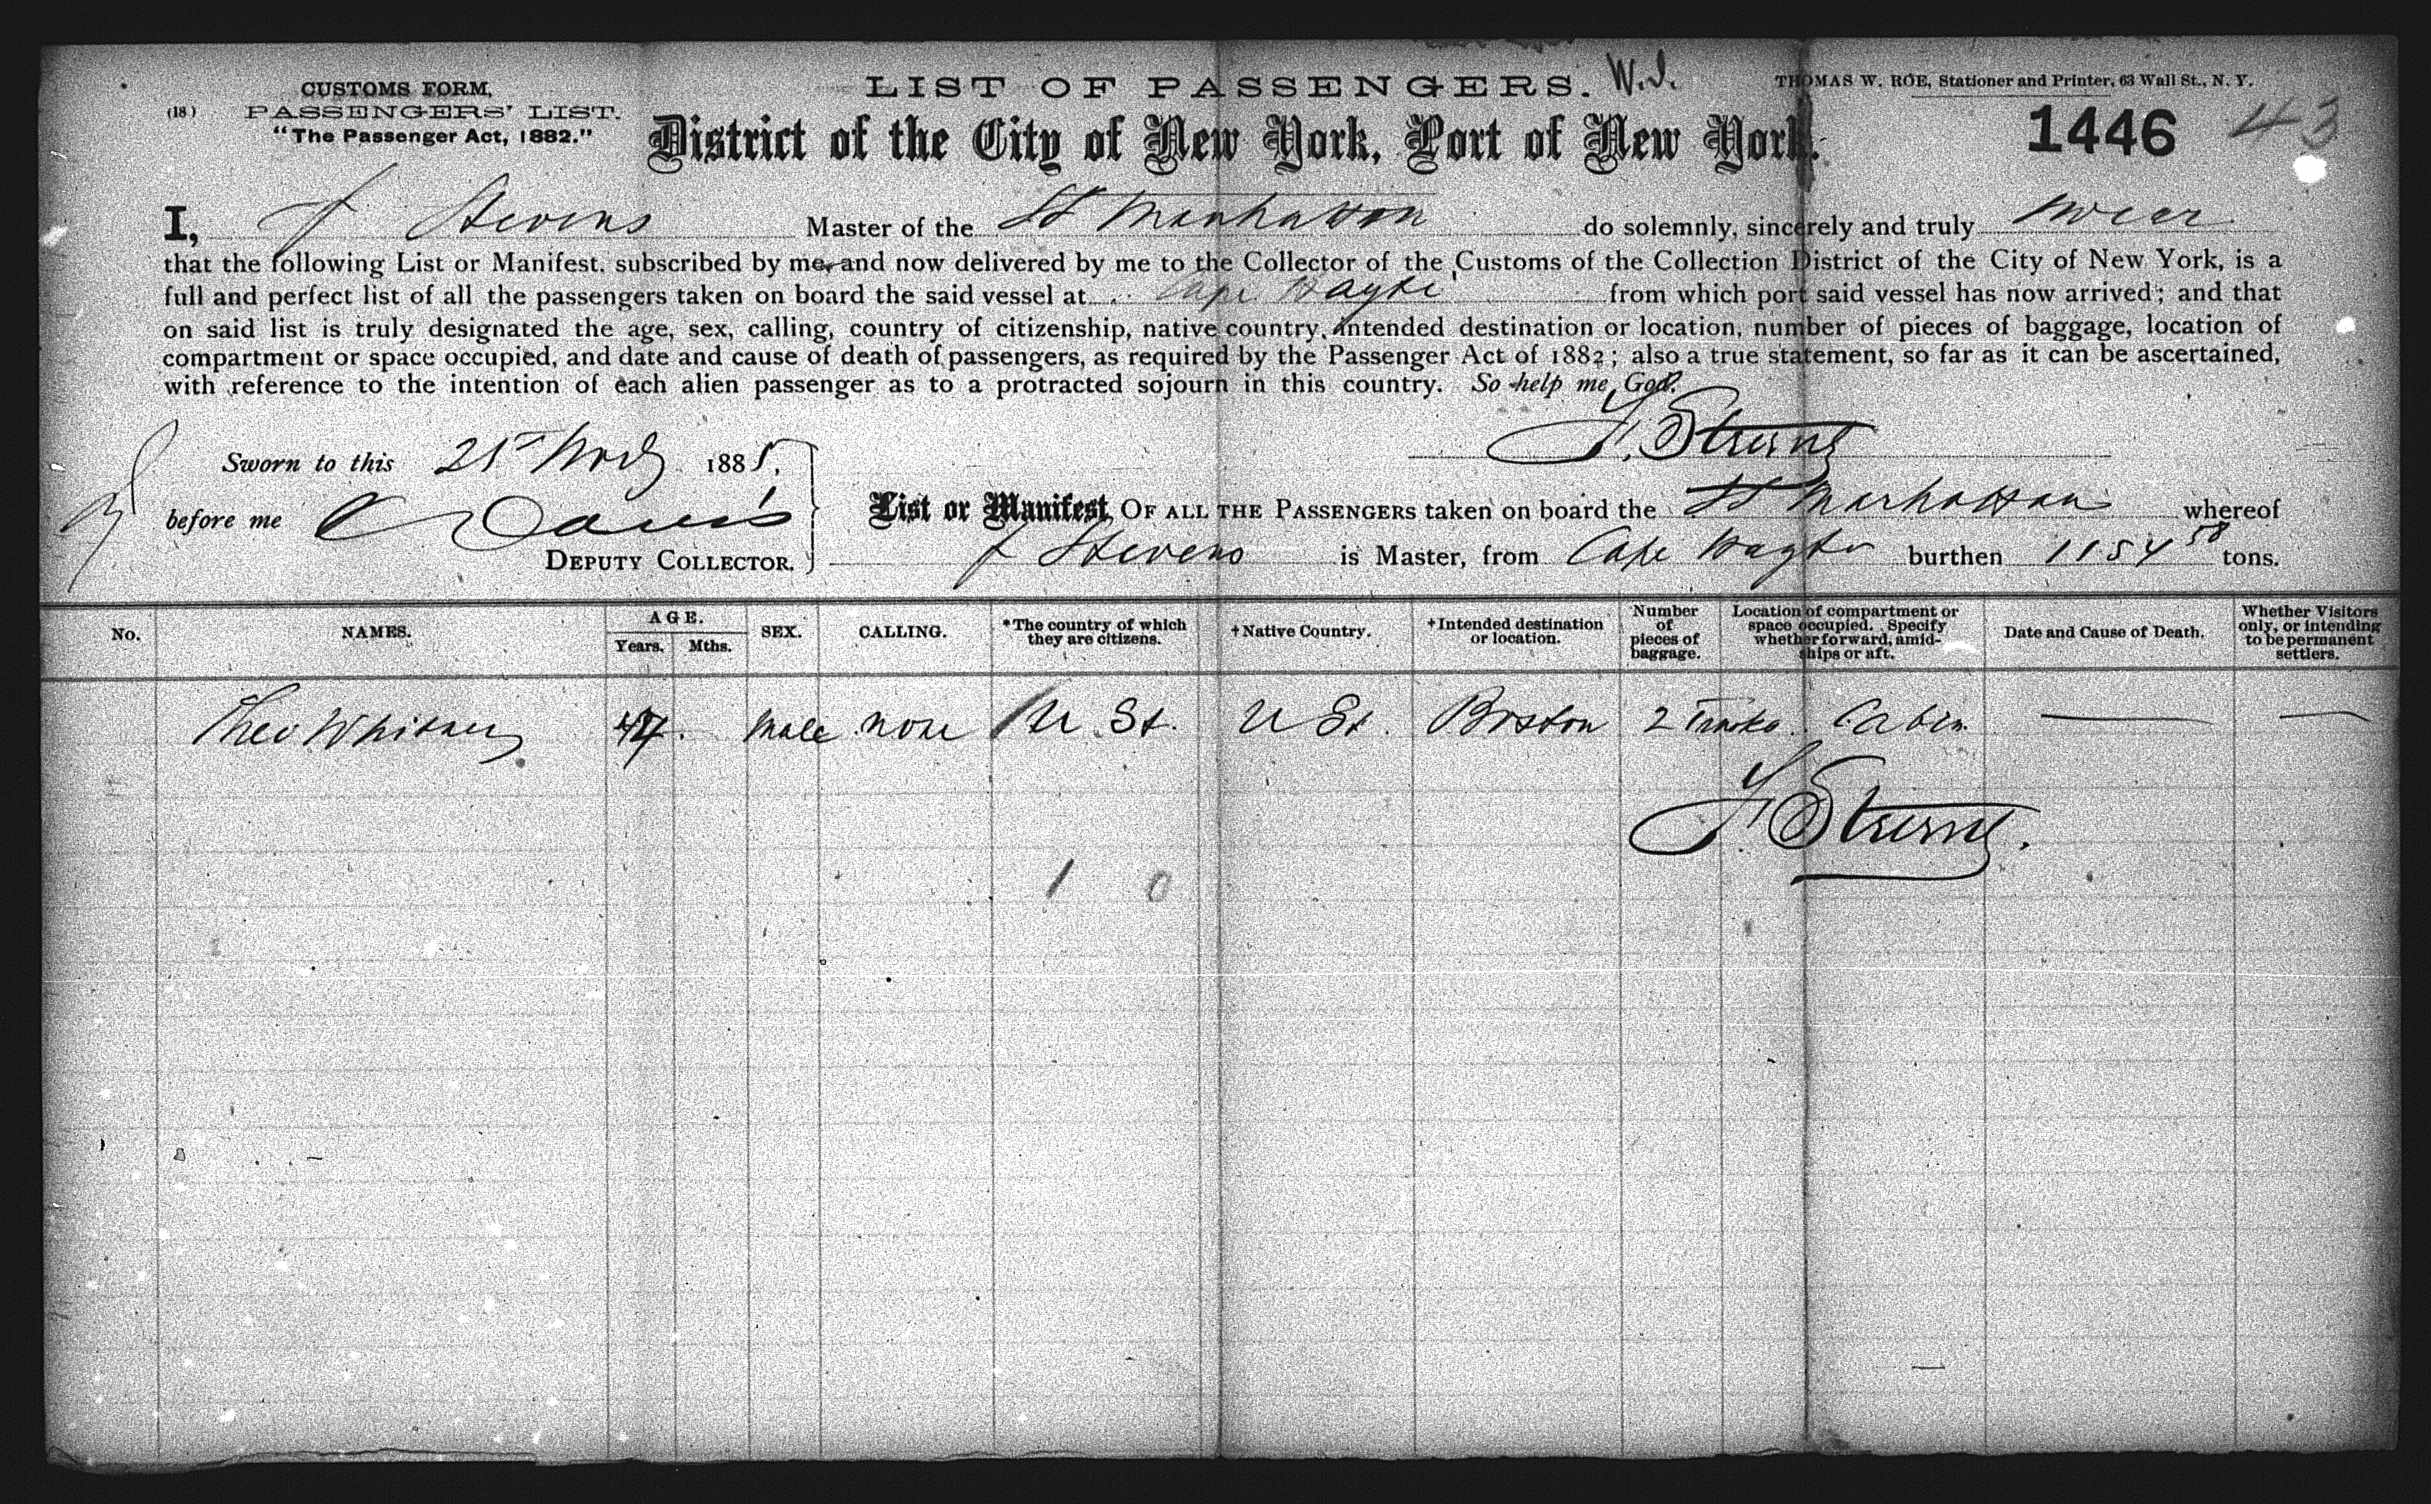 CUSTOMS FORM,
(18) PASSENGERS' LIST.
"The Passenger Act, 1882."
LIST OF PASSENGERS. W.I.
THOMAS W. ROE, Stationer and Printer, 63 Wall St., N. Y.
District of the City of New York, Port of New York.
1446 43
I, F Stevens Master of the St Manhattan do solemnly, sincerely and truly swear
that the following List or Manifest, subscribed by me, and now delivered by me to the Collector of the Customs of the Collection District of the City of New York, is a
full and perfect list of all the passengers taken on board the said vessel at Cape Hayti from which port said vessel has now arrived; and that
on said list is truly designated the age, sex, calling, country of citizenship, native country, intended destination or location, number of pieces of baggage, location of
compartment or space occupied, and date and cause of death of passengers, as required by the Passenger Act of 1882; also a true statement, so far as it can be ascertained,
with reference to the intention of each alien passenger as to a protracted sojourn in this country. So help me God.
F. Stevens
Sworn to this 25 Novr 1885,
before me C Davis
DEPUTY COLLECTOR.
List or Manifest, OF ALL THE PASSENGERS taken on board the St Manhattan whereof
F Stevens is Master, from Cape Hayti burthen 1154 58 tons.
No. NAMES. AGE. Years. Mths. SEX. CALLING. *The country of which they are citizens. †Native Country. †Intended destination or location. Number of pieces of baggage. Location of compartment or space occupied. Specify whether forward, amidships or aft. Date and Cause of Death. Whether Visitors only, or intending to be permanent settlers.
Theo Whitney 47. Male none U St. U St. Boston 2 Trunks Cabin — —
F Stevens.
1 0